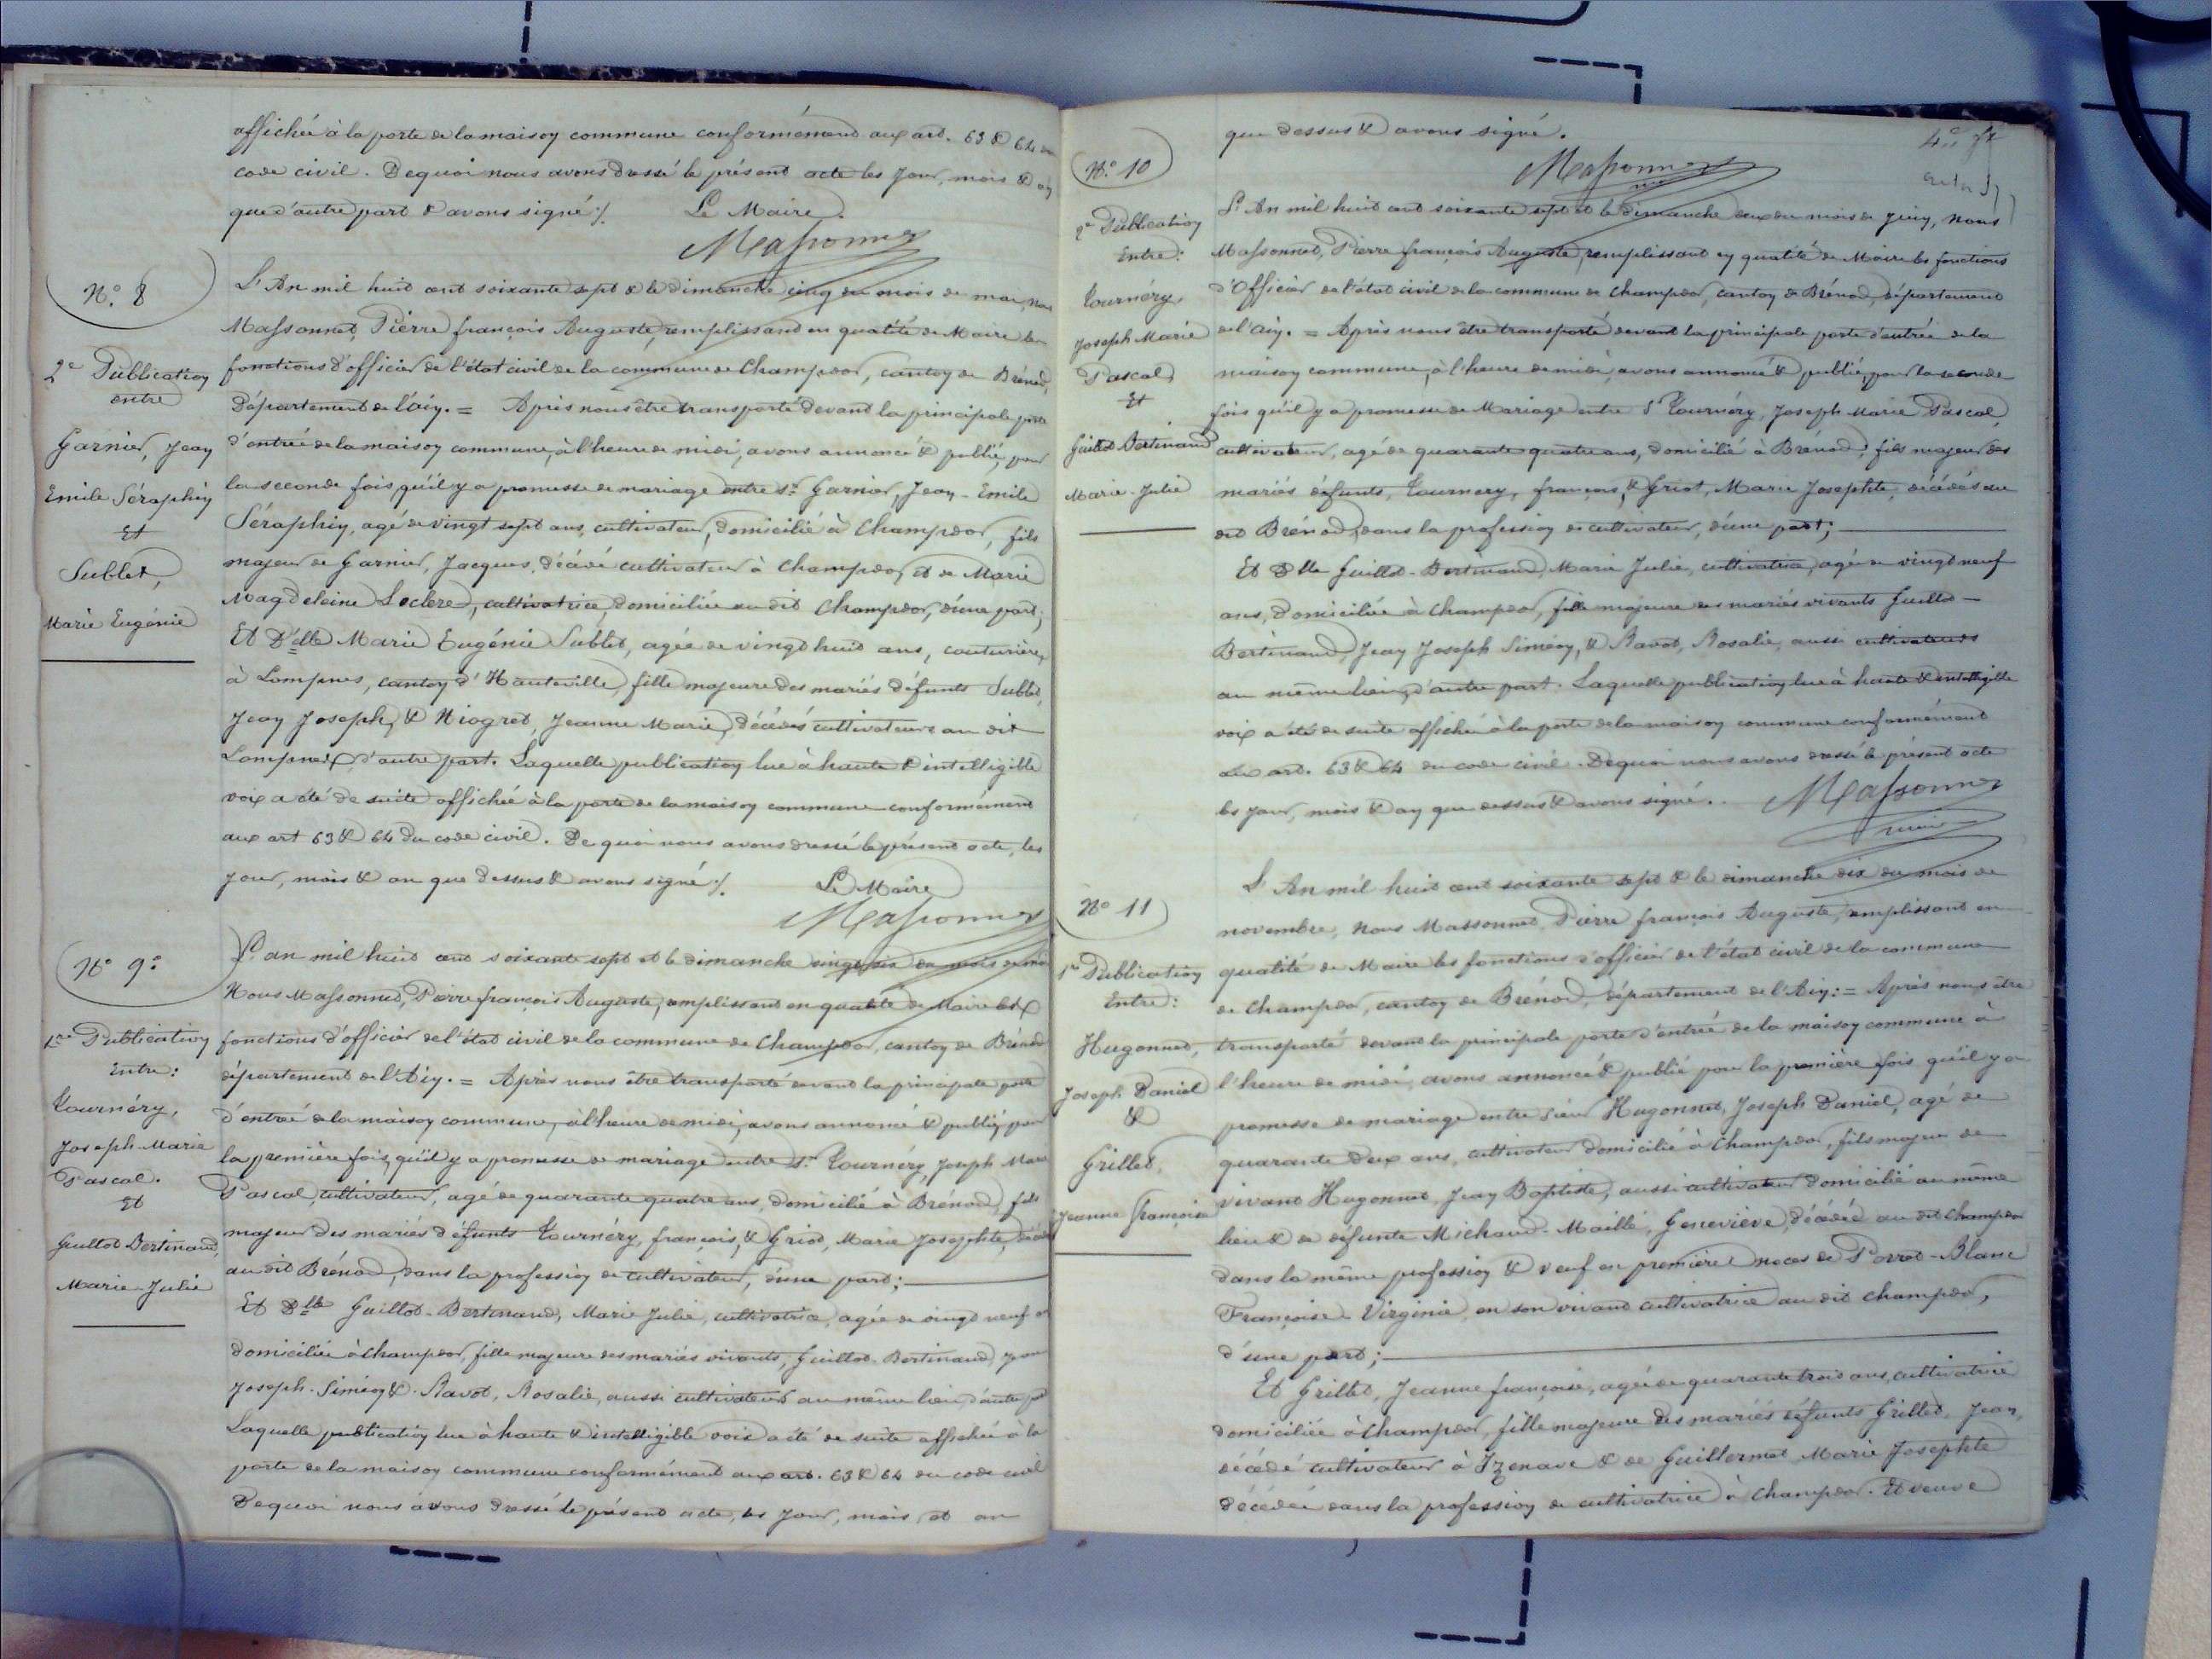 affichée à la porte de la maison commune conformément aux art. 63 & 64 du
code civil. De quoi nous avons dressé le présent acte les jour, mois & an
que d'autre part & avons signé ./. Le Maire.
Massonnet
N.° 8
2e Publication
entre
Garnier, Jean
Emile Séraphin
Et
Sublet,
Marie Eugénie
L'An mil huit cent soixante sept & le dimanche cinq du mois de mai, nous
Massonnet, Pierre françois Auguste, remplissant en qualité de Maire les
fonctions d'officier de l'état civil de la commune de Champdor, canton de Brénod,
Département de l'ain. = Après nous être transporté devant la principale porte
d'entrée de la maison commune, à l'heure de midi, avons annoncé & publié, pour
la seconde fois qu'il y a promesse de mariage entre sr Garnier, Jean-Emile
Séraphin, agé de vingt sept ans, cultivateur, domicilié à Champdor, fils
majeur de Garnier, Jacques, décédé cultivateur à Champdor, et de Marie
Magdeleine Leclere, cultivatrice, domiciliée au dit Champdor, d'une part;
Et Delle Marie Eugénie Sublet, agée de vingt huit ans, couturière,
à Lompnes, canton d'Hauteville, fille majeure des mariés défunts Sublet,
Jean Joseph, & Niogret, Jeanne Marie, décédés cultivateurs au dit
d'autre part. Laquelle publication lue à haute & intelligible
voix a été de suite affichée à la porte de la maison commune conformément
aux art 63 & 64 du code civil. De quoi nous avons dressé le présent acte, les
jour, mois & an que dessus & avons signé ./. Le Maire
Massonnet
N° 9.°
1re Publication
Entre:
Tournéry,
Joseph-Marie
Pascal.
Et
Guillot-Bertinand,
Marie-Julie
L'an mil huit cent soixante sept et le dimanche vingt six du mois de mai
Nous Massonnet, Pierre françois Auguste, remplissant en qualité de Maire les
fonctions d'officier de l'état civil de la commune de Champdor, canton de Brénod
département de l'Ain. = Après nous être transporté devant la principale porte
d'entrée de la maison commune, à l'heure de midi, avons annoncé & publié, pour
la première fois, qu'il y a promesse de mariage entre sr Tournéry, Joseph Marie
Pascal, cultivateur, agé de quarante quatre ans, domicilié à Brénod, fils
majeur des mariés défunts Tournéry, françois, & Griot, Marie Josephte, décédés
au dit Brénod, dans la profession de cultivateur, d'une part;
Et Dlle Guillot-Bertinand, Marie Julie, cultivatrice, agée de vingt neuf ans
domiciliée à Champdor, fille majeure des mariés vivants, Guillot-Bertinand, Jean
Joseph-Siméon & Ravot, Rosalie, aussi cultivateurs au même lieu, d'autre part
Laquelle publication lue à haute & intelligible voix a été de suite affichée à la
porte de la maison commune conformément aux art. 63 & 64 du code civil
De quoi nous avons dressé le présent acte, les jour, mois et an
que dessus & avons signé.
Massonnet
N.° 10
2e Publication
Entre:
Tournéry,
Joseph Marie
Pascal,
Et
Guillot-Bertinand
Marie-Julie
L'An mil huit cent soixante sept et le dimanche deux du mois de juin, nous
Massonnet, Pierre françois Auguste, remplissant en qualité de Maire les fonctions
d'Officier de l'état civil de la commune de Champdor, canton de Brénod, département
de l'Ain. = Après nous être transporté devant la principale porte d'entrée de la
maison commune, à l'heure de midi, avons annoncé & publié, pour la seconde
fois qu'il y a promesse de Mariage entre Sr Tournéry, Joseph Marie Pascal,
cultivateur, agé de quarante quatre ans, domicilié à Brénod, fils majeur des
mariés défunts, Tournery, françois, & Griot, Marie Josephte, décédés au
dit Brénod, dans la profession de cultivateur, d'une part;
Et Dlle Guillot-Bertinand, Marie Julie, cultivatrice, agée de vingt neuf
ans, domiciliée à Champdor, fille majeure des mariés vivants Guillot-
Bertinand, Jean Joseph Siméon, & Ravot, Rosalie, aussi cultivateurs
au même lieu, d'autre part. Laquelle publication lue à haute & intelligible
voix a été de suite affichée à la porte de la maison commune conformément
aux art. 63 & 64 du code civil. De quoi nous avons dressé le présent acte
les jour, mois & an que dessus & avons signé. Massonnet
N° 11
1re Publication
Entre:
Hugonnet,
Joseph Daniel
&
Grillet,
Jeanne françoise
L'An mil huit cent soixante sept & le dimanche dix du mois de
novembre, nous Massonnet, Pierre françois Auguste, remplissant en
qualité de Maire les fonctions d'officier de l'état civil de la commune
de Champdor, canton de Brénod, département de l'Ain: = Après nous être
transporté devant la principale porte d'entrée de la maison commune à
l'heure de midi, avons annoncé & publié pour la première fois qu'il y a
promesse de mariage entre sieur Hugonnet, Joseph Daniel, agé de
quarante deux ans, cultivateur domicilié à Champdor, fils majeur de
vivant Hugonnet, Jean Baptiste, aussi cultivateur domicilié au même
lieu & de défunte Michaud-Maillé, Geneviève, décédée au dit Champdor
dans la même profession & veuf en première noces de Pavot-Blanc
Françoise-Virginie, en son vivant cultivatrice au dit Champdor,
d'une part;
Et Grillet, Jeanne françoise, agée de quarante trois ans, cultivatrice
domiciliée à Champdor, fille majeure des mariés défunts Grillet, Jean,
décédé cultivateur à Izenave & de Guillermet Marie Josephte
décédée dans la profession de cultivatrice à Champdor. Et veuve